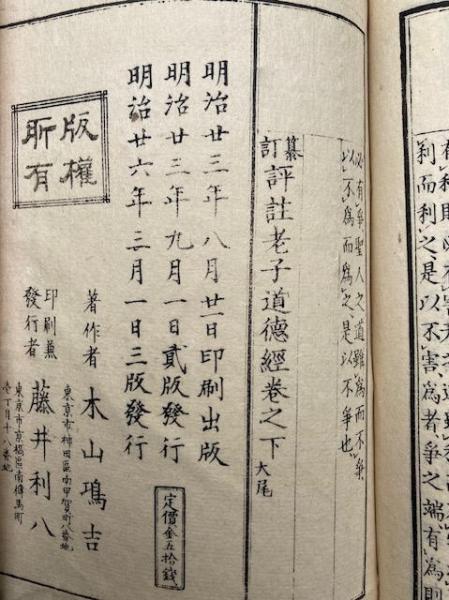 利而利之是以不害爲者爭之端有爲則
必有爭聖人之道雖爲而不爭
以不爲而爲之是以不爭也
纂訂 評註老子道德經卷之下 大尾
明治廿三年八月廿一日印刷出版
明治廿三年九月一日貳版發行
明治廿六年三月一日三版發行
定價金五拾錢
著作者 木山鴻吉
東京市神田區南甲賀町八番地
印刷兼
發行者 藤井利八
東京市京橋區南傳馬町
壱丁目十八番地
版權
所有